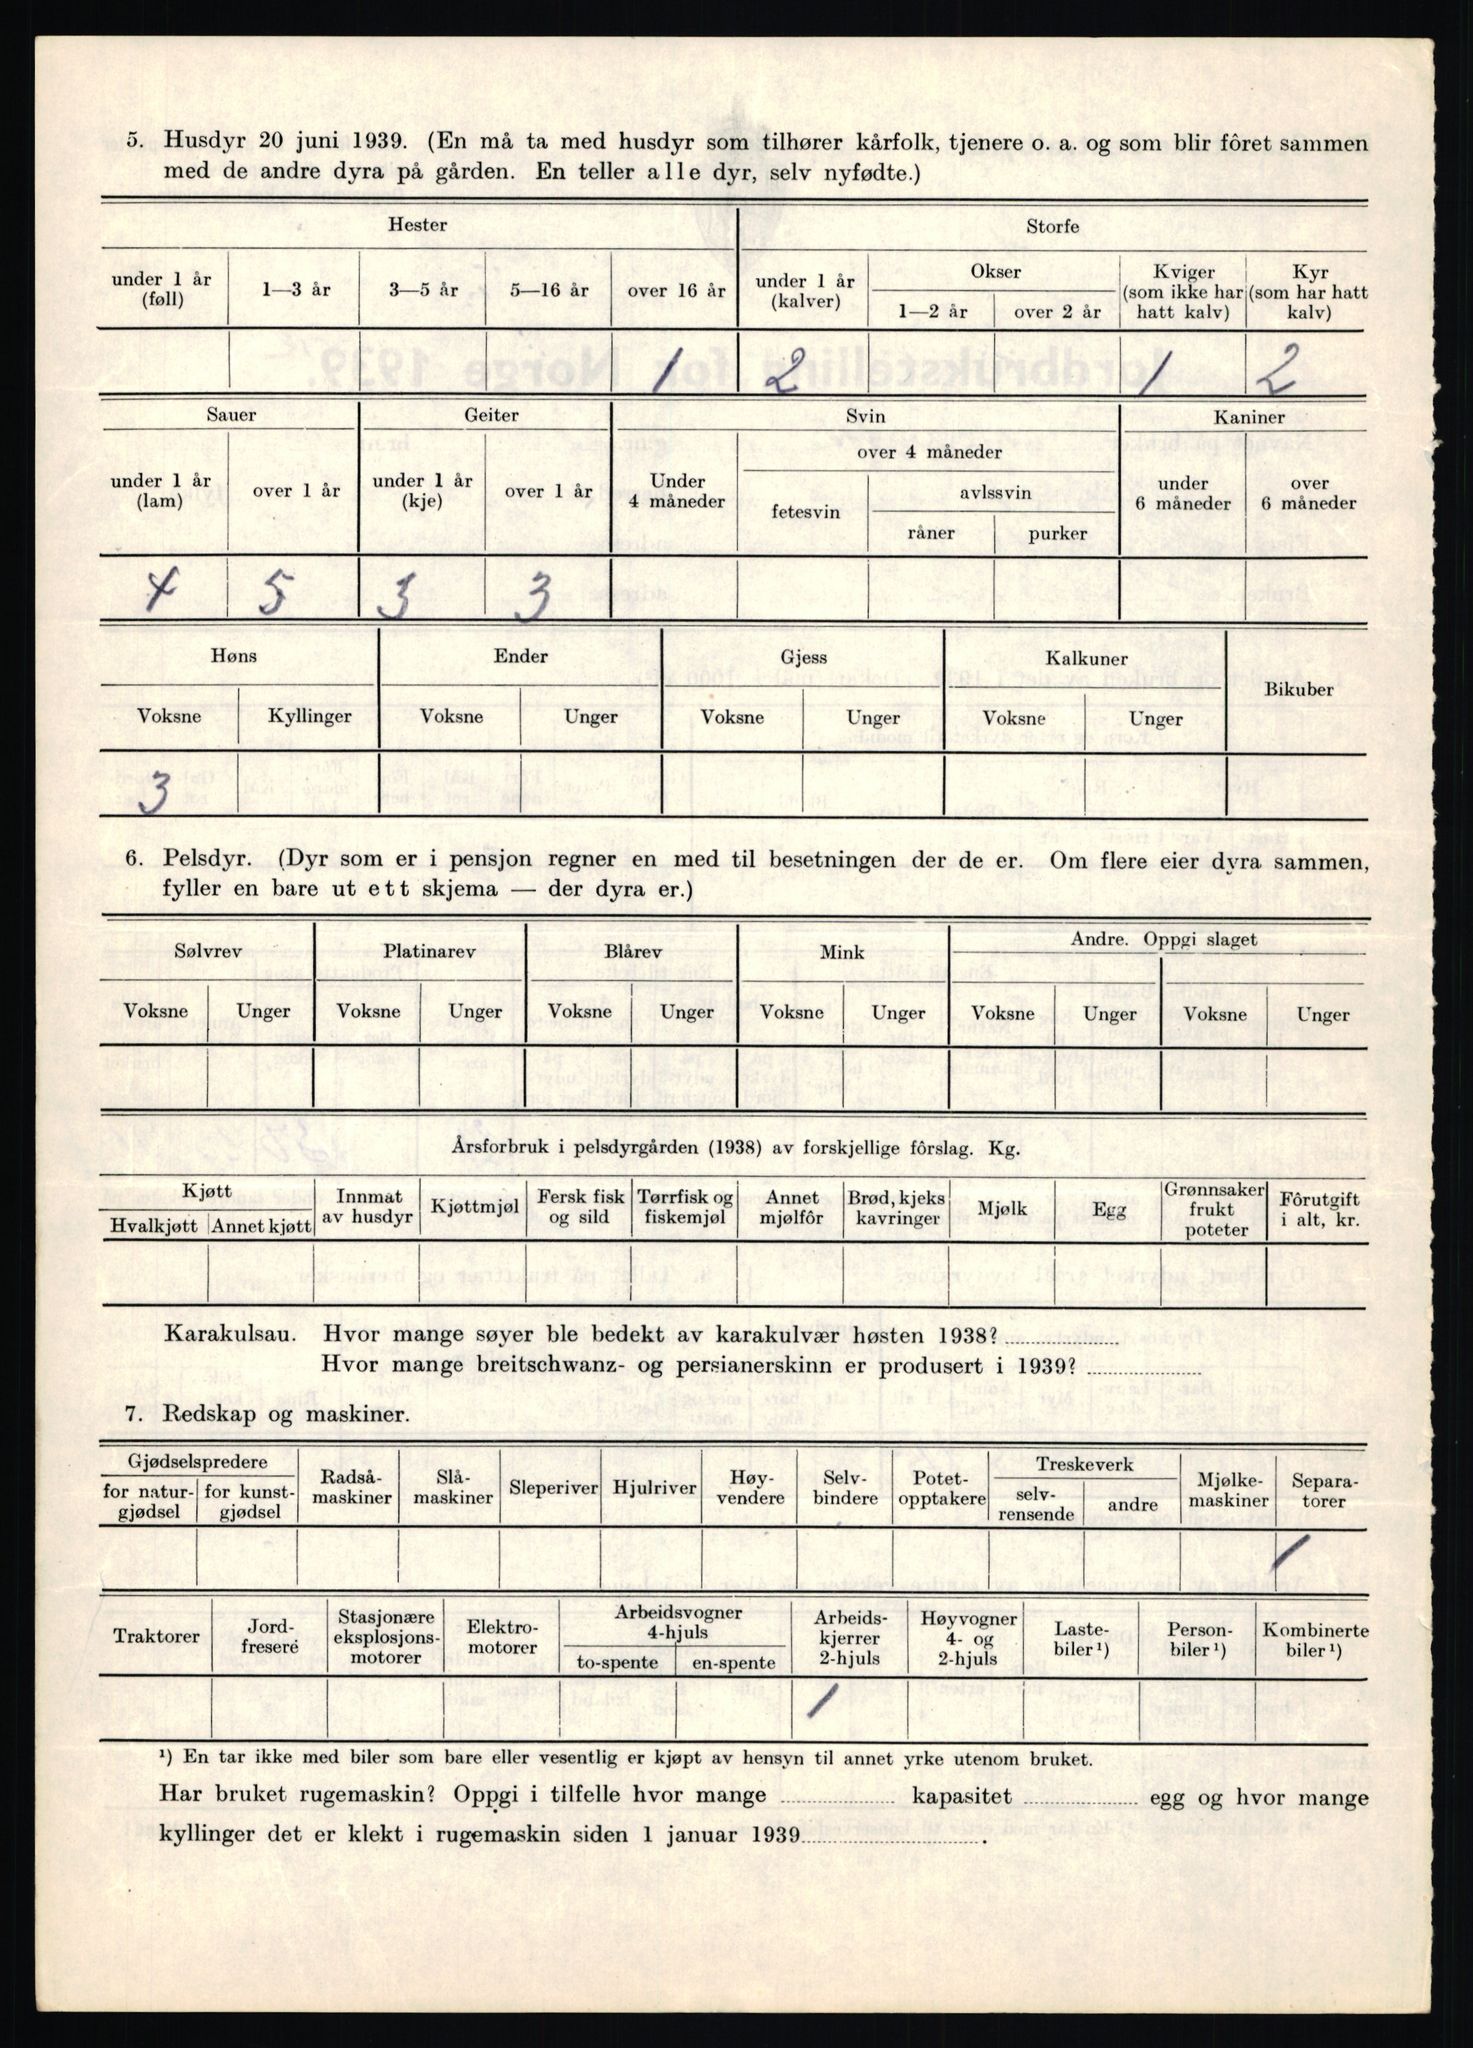 5. Husdyr 20 juni 1939. (En må ta med husdyr som tilhører kårfolk, tjenere o. a. og som blir fôret sammen
med de andre dyra på gården. En teller alle dyr, selv nyfødte.)
Hester Storfe
under 1 år (føll) 1—3 år 3—5 år 5—16 år over 16 år under 1 år (kalver) Okser 1—2 år over 2 år Kviger (som ikke har hatt kalv) Kyr (som har hatt kalv)
1 2 1 2
Sauer Geiter Svin Kaniner
over 4 måneder
under 1 år (lam) over 1 år under 1 år (kje) over 1 år Under 4 måneder fetesvin avlssvin råner purker under 6 måneder over 6 måneder
4 5 3 3
Høns Ender Gjess Kalkuner Bikuber
Voksne Kyllinger Voksne Unger Voksne Unger Voksne Unger
3
6. Pelsdyr. (Dyr som er i pensjon regner en med til besetningen der de er. Om flere eier dyra sammen,
fyller en bare ut ett skjema — der dyra er.)
Sølvrev Platinarev Blårev Mink Andre. Oppgi slaget
Voksne Unger Voksne Unger Voksne Unger Voksne Unger Voksne Unger Voksne Unger
Årsforbruk i pelsdyrgården (1938) av forskjellige fôrslag. Kg.
Kjøtt Hvalkjøtt Annet kjøtt Innmat av husdyr Kjøttmjøl Fersk fisk og sild Tørrfisk og fiskemjøl Annet mjølfôr Brød, kjeks kavringer Mjølk Egg Grønnsaker frukt poteter Fôrutgift i alt, kr.
Karakulsau. Hvor mange søyer ble bedekt av karakulvær høsten 1938?
Hvor mange breitschwanz- og persianerskinn er produsert i 1939?
7. Redskap og maskiner.
Gjødselspredere for natur-gjødsel for kunst-gjødsel Radså-maskiner Slå-maskiner Sleperiver Hjulriver Høy-vendere Selv-bindere Potet-opptakere Treskeverk selv-rensende andre Mjølke-maskiner Separa-torer
1
Traktorer Jord-freseré Stasjonære eksplosjons-motorer Elektro-motorer Arbeidsvogner 4-hjuls to-spente en-spente Arbeids-kjerrer 2-hjuls Høyvogner 4- og 2-hjuls Laste-biler ¹) Person-biler ¹) Kombinerte biler ¹)
1
¹) En tar ikke med biler som bare eller vesentlig er kjøpt av hensyn til annet yrke utenom bruket.
Har bruket rugemaskin? Oppgi i tilfelle hvor mange kapasitet egg og hvor mange
kyllinger det er klekt i rugemaskin siden 1 januar 1939.